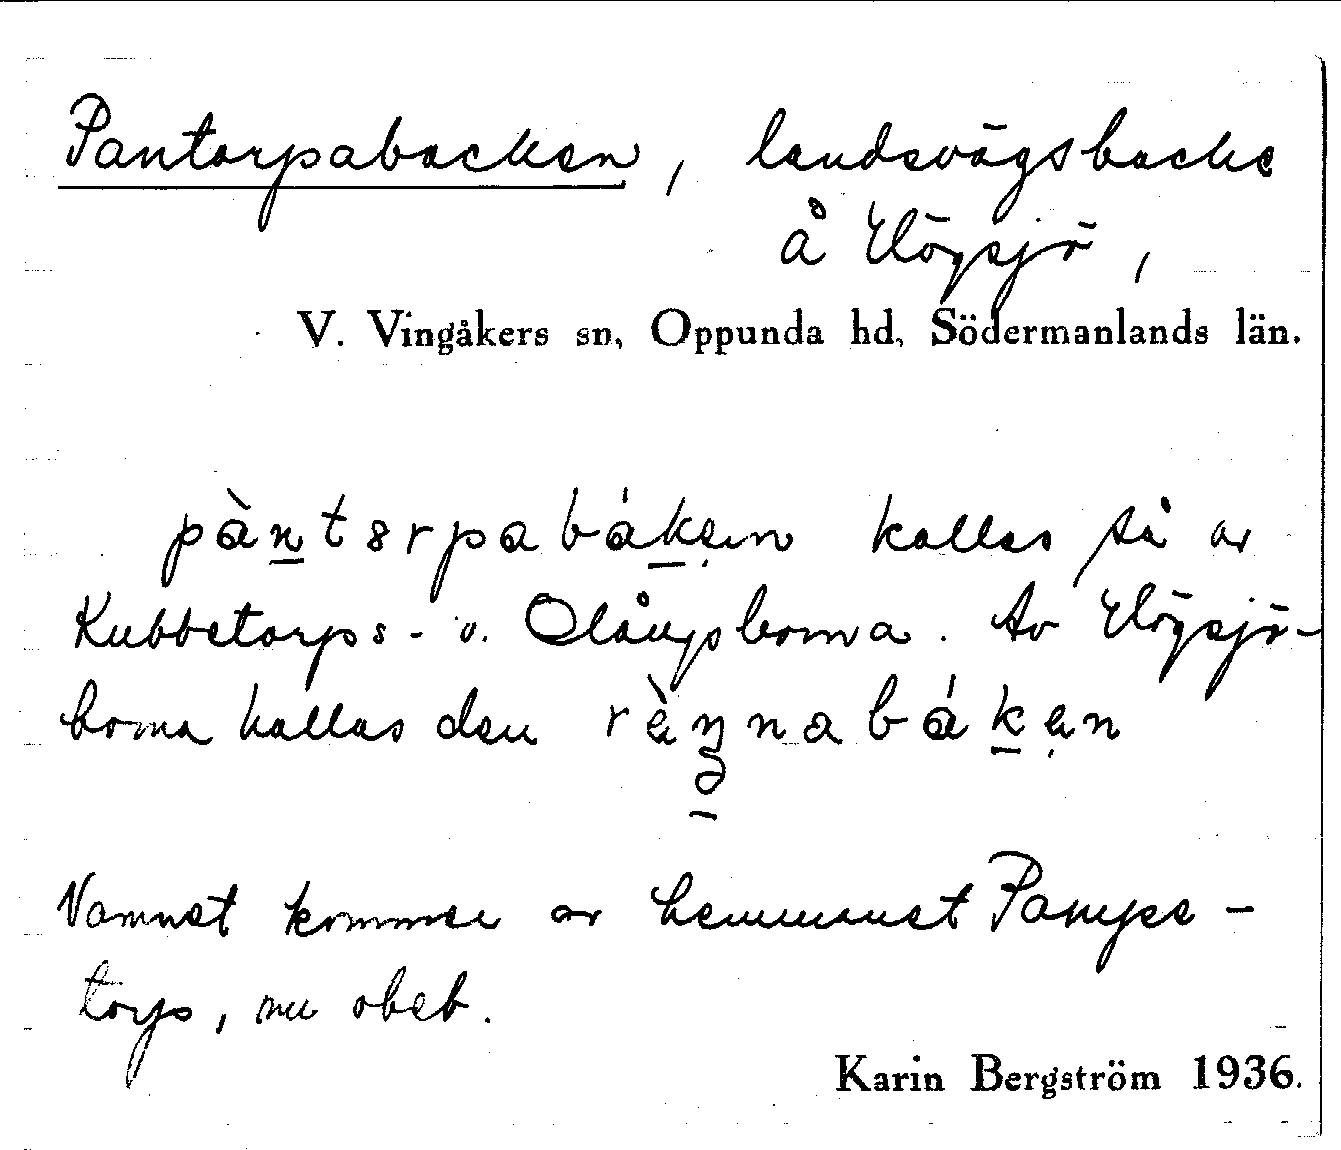 Pantorpabacken, landsvägsbacke
å Högsjö,
V. Vingåkers sn, Oppunda hd, Södermanlands län.
pàntorpabáken kallas så av
Kubbetorps- o. Olångsborna. Av Högsjö-
borna kallas den rèŋnabáken
Namnet kommer av hemmanet Pampe-
torp, nu obeb.
Karin Bergström 1936.